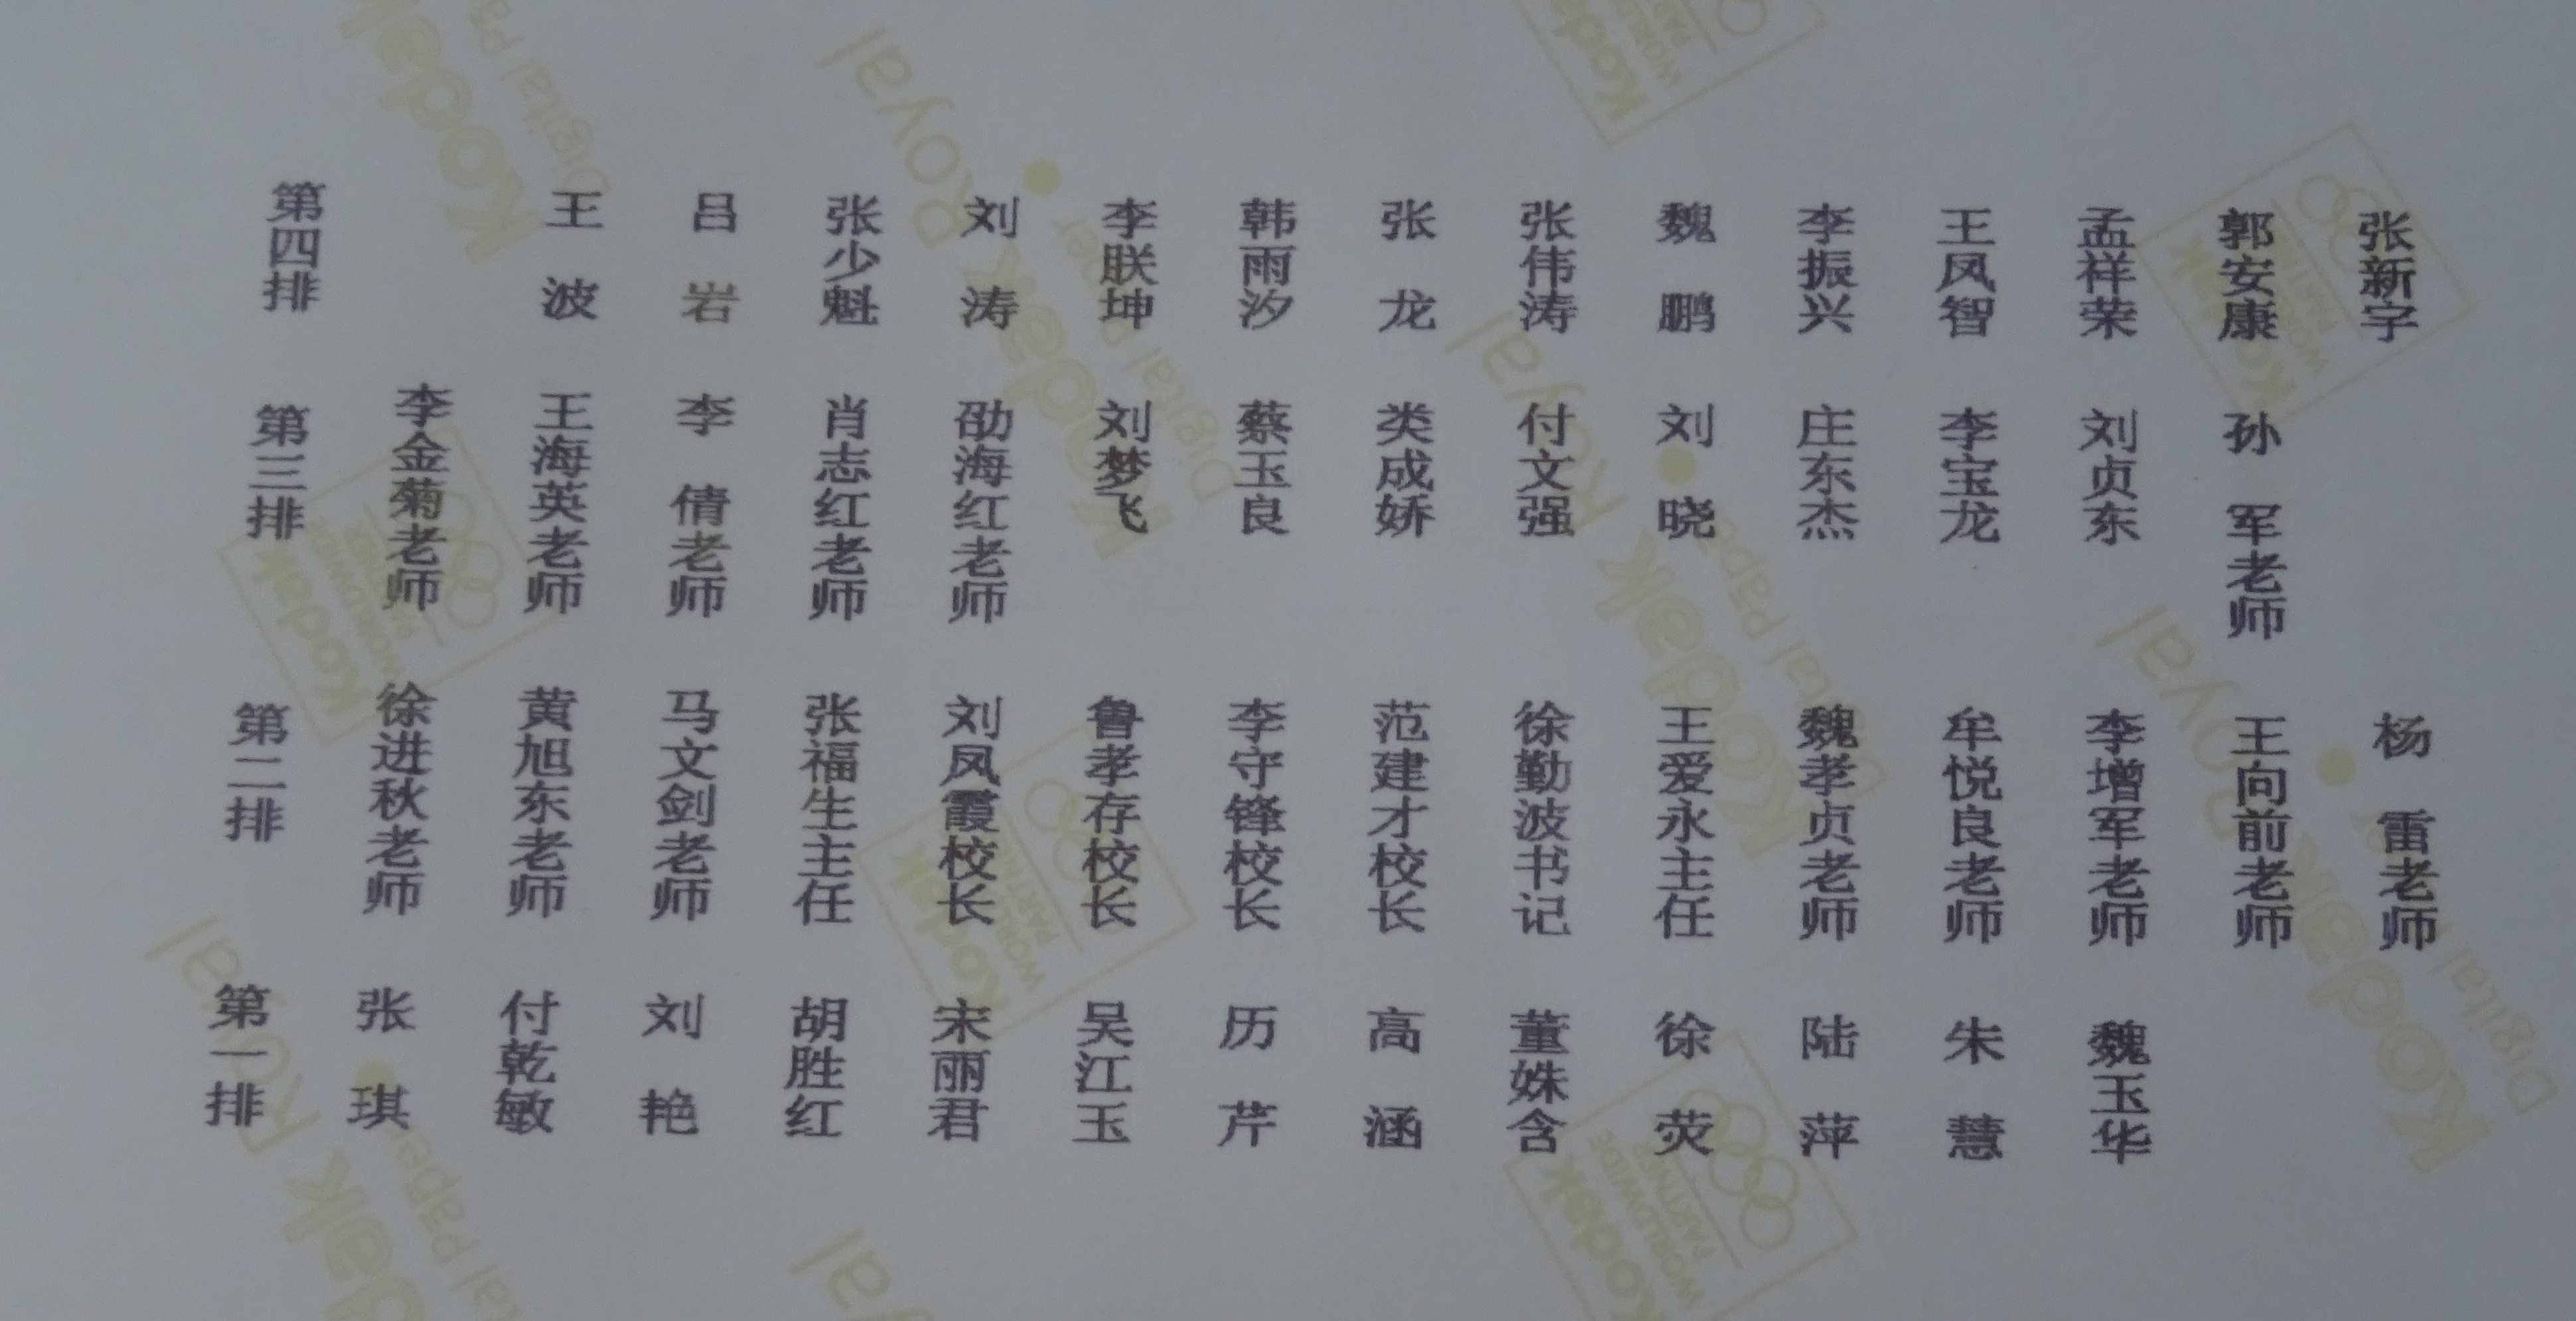 第四排 王波 吕岩 张少魁 刘涛 李朕坤 韩雨汐 张龙 张伟涛 魏鹏 李振兴 王凤智 孟祥荣 郭安康 张新字
第三排 李金菊老师 王海英老师 李倩老师 肖志红老师 劭海红老师 刘梦飞 蔡玉良 类成娇 付文强 刘晓 庄东杰 李宝龙 刘贞东 孙军老师
第二排 徐进秋老师 黄旭东老师 马文剑老师 张福生主任 刘凤霞校长 鲁孝存校长 李守锋校长 范建才校长 徐勤波书记 王爱永主任 魏孝贞老师 牟悦良老师 李增军老师 王向前老师 杨雷老师
第一排 张琪 付乾敏 刘艳 胡胜红 宋丽君 吴江玉 历芹 高涵 董姝含 徐荧 陆萍 朱慧 魏玉华
Kodak Royal
Digital Paper
Kodak
WORLDWIDE
PARTNER